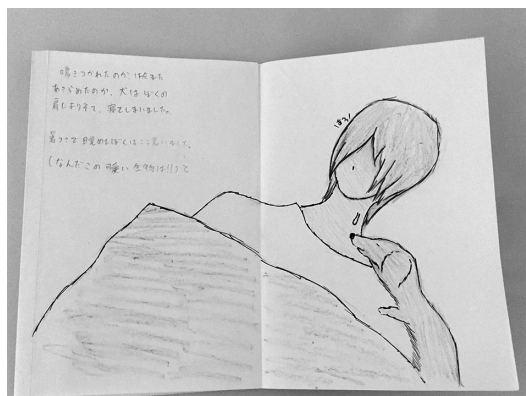 鳴きつかれたのか、はたまた
あきらめたのか、犬はぼくの
肩によりそって、寝てしまいました。
暑さで目覚めたぼくはこう思いました。
(なんだこの可愛い生物は!!)と